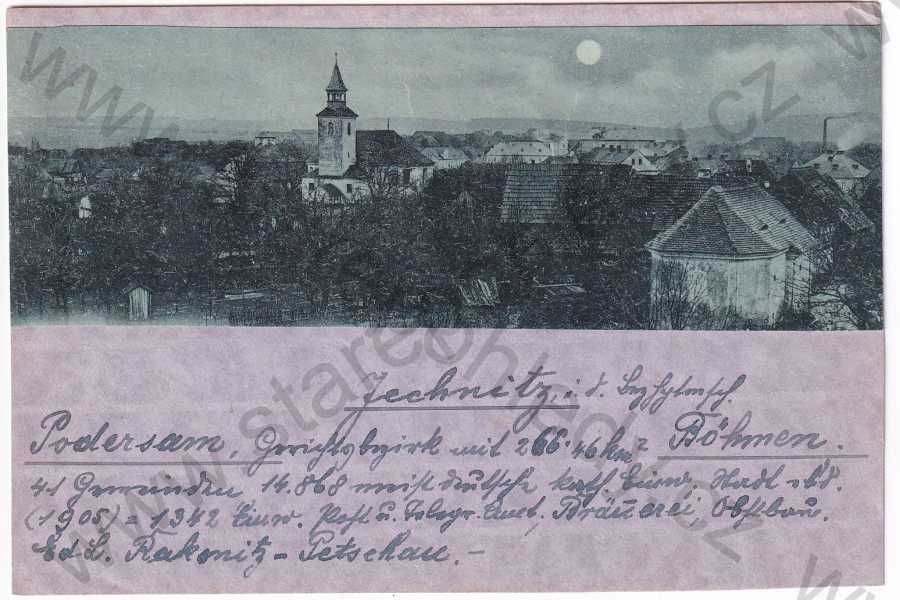 Jechnitz, i. d. Bezhptmsch.
Podersam, Gerichtsbezirk mit 266.46 km² Böhmen.
41 Gemeinden, 14.868 meist deutsche kath. Einw. Stadt
(1905) = 1342 Einw. Post u. Telegr. Amt, Bräuerei, Obstbau.
Rakonitz - Petschau. -